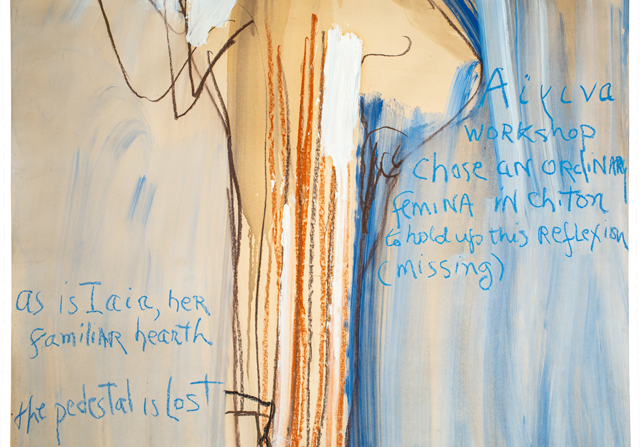 Aiγιva
WORKSHOP
Chose AN ORDINARY
femina in chiton
to hold up this REFLEXION
(missing)
as is Iaia, heR
familiAR hearth
the pedestal is Lost